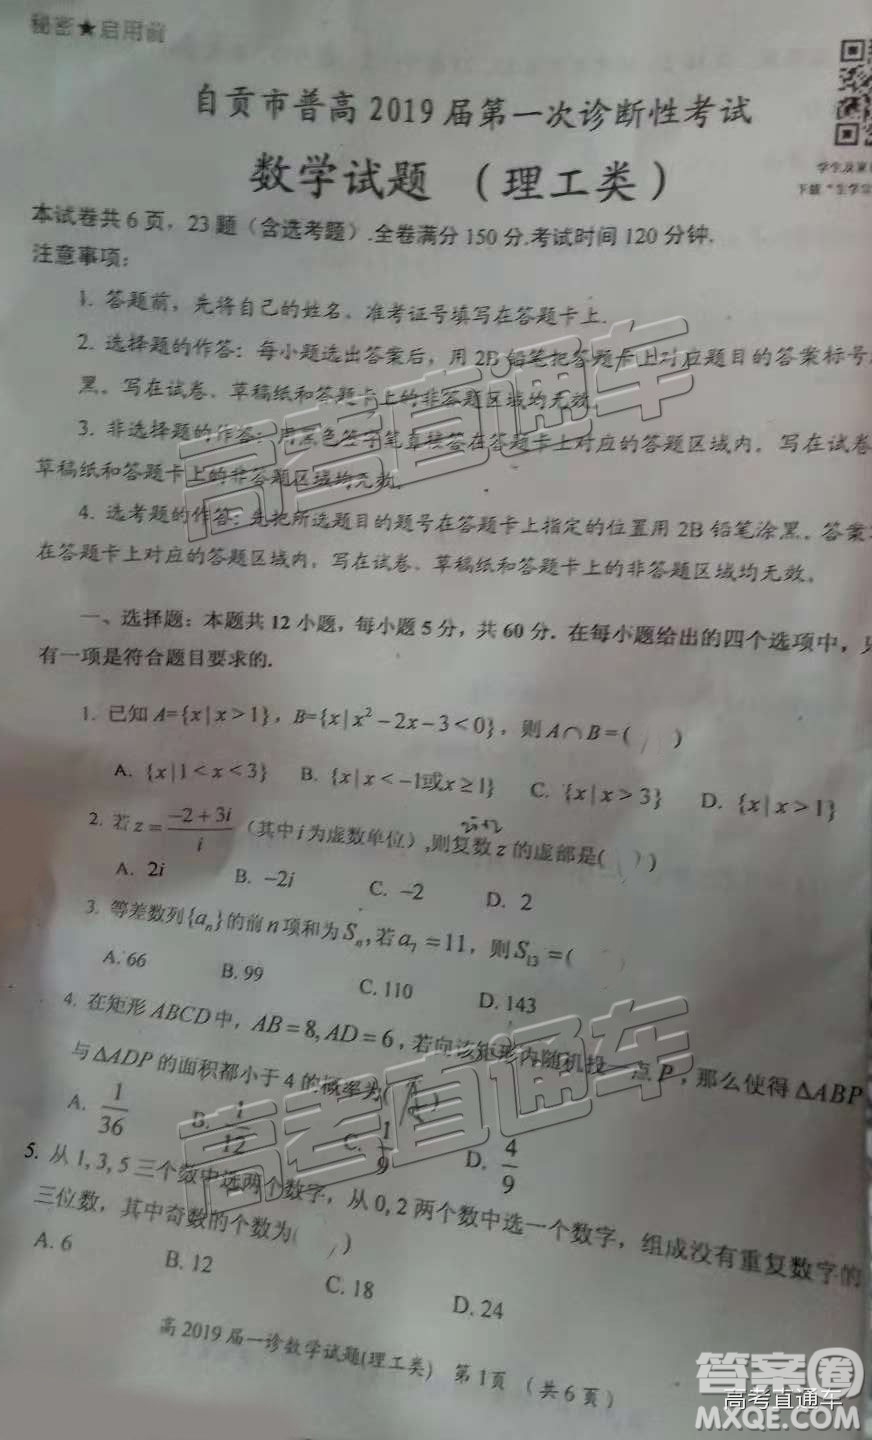 秘密★启用前
自贡市普高 2019 届第一次诊断性考试
数学试题 （理工类）
学生及家
下载“生学
本试卷共 6 页，23 题（含选考题）.全卷满分 150 分.考试时间 120 分钟.
注意事项：
1. 答题前，先将自己的姓名、准考证号填写在答题卡上.
2. 选择题的作答：每小题选出答案后，用 2B 铅笔把答题卡上对应题目的答案标号
黑。写在试卷、草稿纸和答题卡上的非答题区域均无效.
3. 非选择题的作答：用黑色签字笔直接答在答题卡上对应的答题区域内。写在试卷
草稿纸和答题卡上的非答题区域均无效.
4. 选考题的作答：先把所选题目的题号在答题卡上指定的位置用 2B 铅笔涂黑。答案
在答题卡上对应的答题区域内，写在试卷、草稿纸和答题卡上的非答题区域均无效。
一、选择题：本题共 12 小题，每小题 5 分，共 60 分. 在每小题给出的四个选项中，只
有一项是符合题目要求的.
1. 已知 A={x|x>1}，B={x|x²−2x−3<0}，则 A∩B=( )
A. {x|1<x<3} B. {x|x<−1或x≥1} C. {x|x>3} D. {x|x>1}
2. 若 z=(−2+3i)/i（其中 i 为虚数单位）,则复数 z 的虚部是( )
A. 2i B. −2i C. −2 D. 2
3. 等差数列{aₙ}的前 n 项和为 Sₙ,若 a₇=11，则 S₁₃=(
A. 66 B. 99 C. 110 D. 143
4. 在矩形 ABCD 中，AB=8, AD=6，若向该矩形内随机投一点 P，那么使得 ΔABP
与 ΔADP 的面积都小于 4 的概率为( )
A. 1/36 B. 1/12 C. 1/9 D. 4/9
5. 从 1, 3, 5 三个数中选两个数字，从 0, 2 两个数中选一个数字，组成没有重复数字的
三位数，其中奇数的个数为( )
A. 6 B. 12 C. 18 D. 24
高 2019 届一诊数学试题(理工类) 第 1页 （共 6 页）
高考直通车
高考直通车
答案圈
高考直通车
MXQE.COM